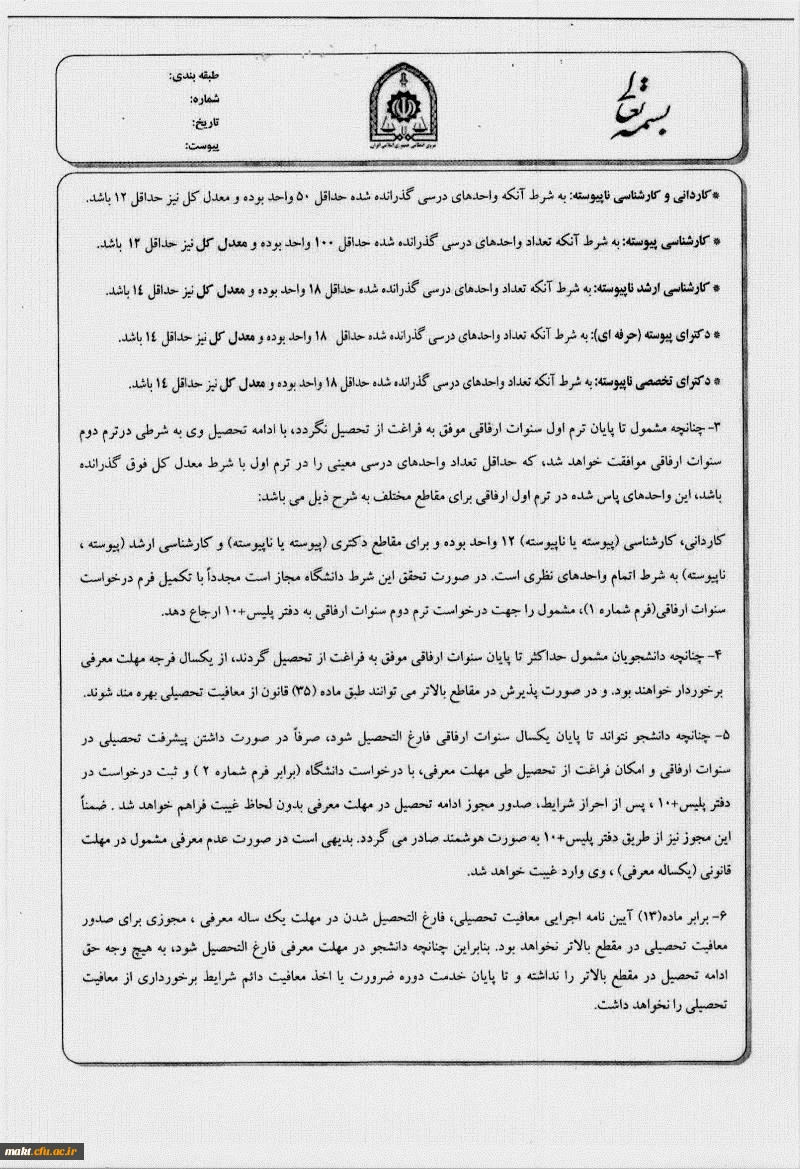 بسمه تعالی
نیروی انتظامی جمهوری اسلامی ایران
طبقه بندی:
شماره:
تاریخ:
پیوست:
*کاردانی و کارشناسی ناپیوسته: به شرط آنکه واحدهای درسی گذرانده شده حداقل ۵۰ واحد بوده و معدل کل نیز حداقل ۱۲ باشد.
* کارشناسی پیوسته: به شرط آنکه تعداد واحدهای درسی گذرانده شده حداقل ۱۰۰ واحد بوده و معدل کل نیز حداقل ۱۲ باشد.
* کارشناسی ارشد ناپیوسته: به شرط آنکه تعداد واحدهای درسی گذرانده شده حداقل ۱۸ واحد بوده و معدل کل نیز حداقل ۱۴ باشد.
* دکترای پیوسته (حرفه ای): به شرط آنکه تعداد واحدهای درسی گذرانده شده حداقل ۱۸ واحد بوده و معدل کل نیز حداقل ۱۴ باشد.
* دکترای تخصصی ناپیوسته: به شرط آنکه تعداد واحدهای درسی گذرانده شده حداقل ۱۸ واحد بوده و معدل کل نیز حداقل ۱۴ باشد.
۳- چنانچه مشمول تا پایان ترم اول سنوات ارفاقی موفق به فراغت از تحصیل نگردد، با ادامه تحصیل وی به شرطی درترم دوم
سنوات ارفاقی موافقت خواهد شد، که حداقل تعداد واحدهای درسی معینی را در ترم اول با شرط معدل کل فوق گذرانده
باشد، این واحدهای پاس شده در ترم اول ارفاقی برای مقاطع مختلف به شرح ذیل می باشد:
کاردانی، کارشناسی (پیوسته یا ناپیوسته) ۱۲ واحد بوده و برای مقاطع دکتری (پیوسته یا ناپیوسته) و کارشناسی ارشد (پیوسته ،
ناپیوسته) به شرط اتمام واحدهای نظری است. در صورت تحقق این شرط دانشگاه مجاز است مجدداً با تکمیل فرم درخواست
سنوات ارفاقی(فرم شماره ۱)، مشمول را جهت درخواست ترم دوم سنوات ارفاقی به دفتر پلیس+۱۰ ارجاع دهد.
۴- چنانچه دانشجویان مشمول حداکثر تا پایان سنوات ارفاقی موفق به فراغت از تحصیل گردند، از یکسال فرجه مهلت معرفی
برخوردار خواهند بود. و در صورت پذیرش در مقاطع بالاتر می توانند طبق ماده (۳۵) قانون از معافیت تحصیلی بهره مند شوند.
۵- چنانچه دانشجو نتواند تا پایان یکسال سنوات ارفاقی فارغ التحصیل شود، صرفاً در صورت داشتن پیشرفت تحصیلی در
سنوات ارفاقی و امکان فراغت از تحصیل طی مهلت معرفی، با درخواست دانشگاه (برابر فرم شماره ۲ ) و ثبت درخواست در
دفتر پلیس+۱۰ ، پس از احراز شرایط، صدور مجوز ادامه تحصیل در مهلت معرفی بدون لحاظ غیبت فراهم خواهد شد . ضمناً
این مجوز نیز از طریق دفتر پلیس+۱۰ به صورت هوشمند صادر می گردد. بدیهی است در صورت عدم معرفی مشمول در مهلت
قانونی (یکساله معرفی) ، وی وارد غیبت خواهد شد.
۶- برابر ماده(۱۳) آیین نامه اجرایی معافیت تحصیلی، فارغ التحصیل شدن در مهلت یک ساله معرفی ، مجوزی برای صدور
معافیت تحصیلی در مقطع بالاتر نخواهد بود. بنابراین چنانچه دانشجو در مهلت معرفی فارغ التحصیل شود، به هیچ وجه حق
ادامه تحصیل در مقطع بالاتر را نداشته و تا پایان خدمت دوره ضرورت یا اخذ معافیت دائم شرایط برخورداری از معافیت
تحصیلی را نخواهد داشت.
makt.cfu.ac.ir